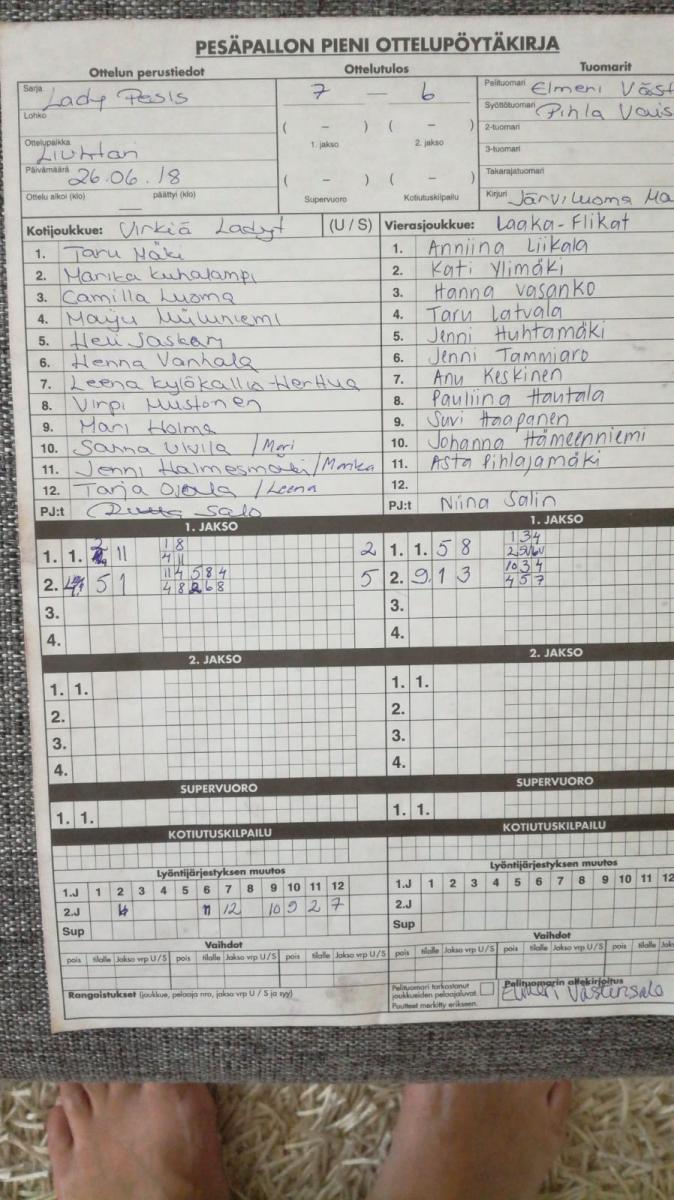 PESÄPALLON PIENI OTTELUPÖYTÄKIRJA
Ottelun perustiedot Ottelutulos Tuomarit
Sarja Lady Pesis 7 – 6 Pelituomari Elmeri Väst
Lohko Syöttötuomari Pihla Vais
( – ) ( – ) 2-tuomari
Ottelupaikka Liuhtari 1. jakso 2. jakso 3-tuomari
Päivämäärä 26.06.18 ( – ) ( – ) Takarajatuomari
Ottelu alkoi (klo) päättyi (klo) Supervuoro Kotiutuskilpailu Kirjuri Järviluoma Ma
Kotijoukkue: Virkiä Ladyt (U / S) Vierasjoukkue: Laaka-Flikat
1. Taru Mäki 1. Anniina Liikala
2. Marika Kuhalampi 2. Kati Ylimäki
3. Camilla Luoma 3. Hanna Vasanko
4. Maiju 4. Taru Latvala
5. Heli 5. Jenni Huhtamäki
6. Henna Vanhala 6. Jenni Tammiaro
7. Leena Kylökallio-Herttua 7. Anu Keskinen
8. Virpi Mustonen 8. Pauliina Hautala
9. Mari Holma 9. Suvi Haapanen
10. Sanna /Mari 10. Johanna Hämeenniemi
11. Jenni Halmesmäki/Marika 11. Asta Pihlajamäki
12. Tarja Ojala /Leena 12.
PJ:t Salo PJ:t Niina Salin
1. JAKSO 1. JAKSO
1. 1. 2 11 1 8 2 1. 1. 5 8 1 3 4
4 11 2 5
2. 5 1 11 4 5 8 4 5 2. 9 1 3 10 3 4
4 8 2 6 8 4 5 7
3. 3.
4. 4.
2. JAKSO 2. JAKSO
1. 1. 1. 1.
2. 2.
3. 3.
4. 4.
SUPERVUORO SUPERVUORO
1. 1. 1. 1.
KOTIUTUSKILPAILU KOTIUTUSKILPAILU
Lyöntijärjestyksen muutos Lyöntijärjestyksen muutos
1.J 1 2 3 4 5 6 7 8 9 10 11 12 1.J 1 2 3 4 5 6 7 8 9 10 11 12
2.J 11 12 10 9 2 7 2.J
Sup Sup
Vaihdot Vaihdot
pois tilalle Jakso vrp U / S pois tilalle Jakso vrp U / S pois tilalle Jakso vrp U / S pois tilalle Jakso vrp U / S pois tilalle Jakso vrp U / S pois tilalle
Rangaistukset (joukkue, pelaaja nro, jakso vrp U / S ja syy) Pelituomari tarkastanut joukkueiden pelaajaluvat. Pelituomarin allekirjoitus
Puutteet merkitty erikseen. Elmeri Västinsalo